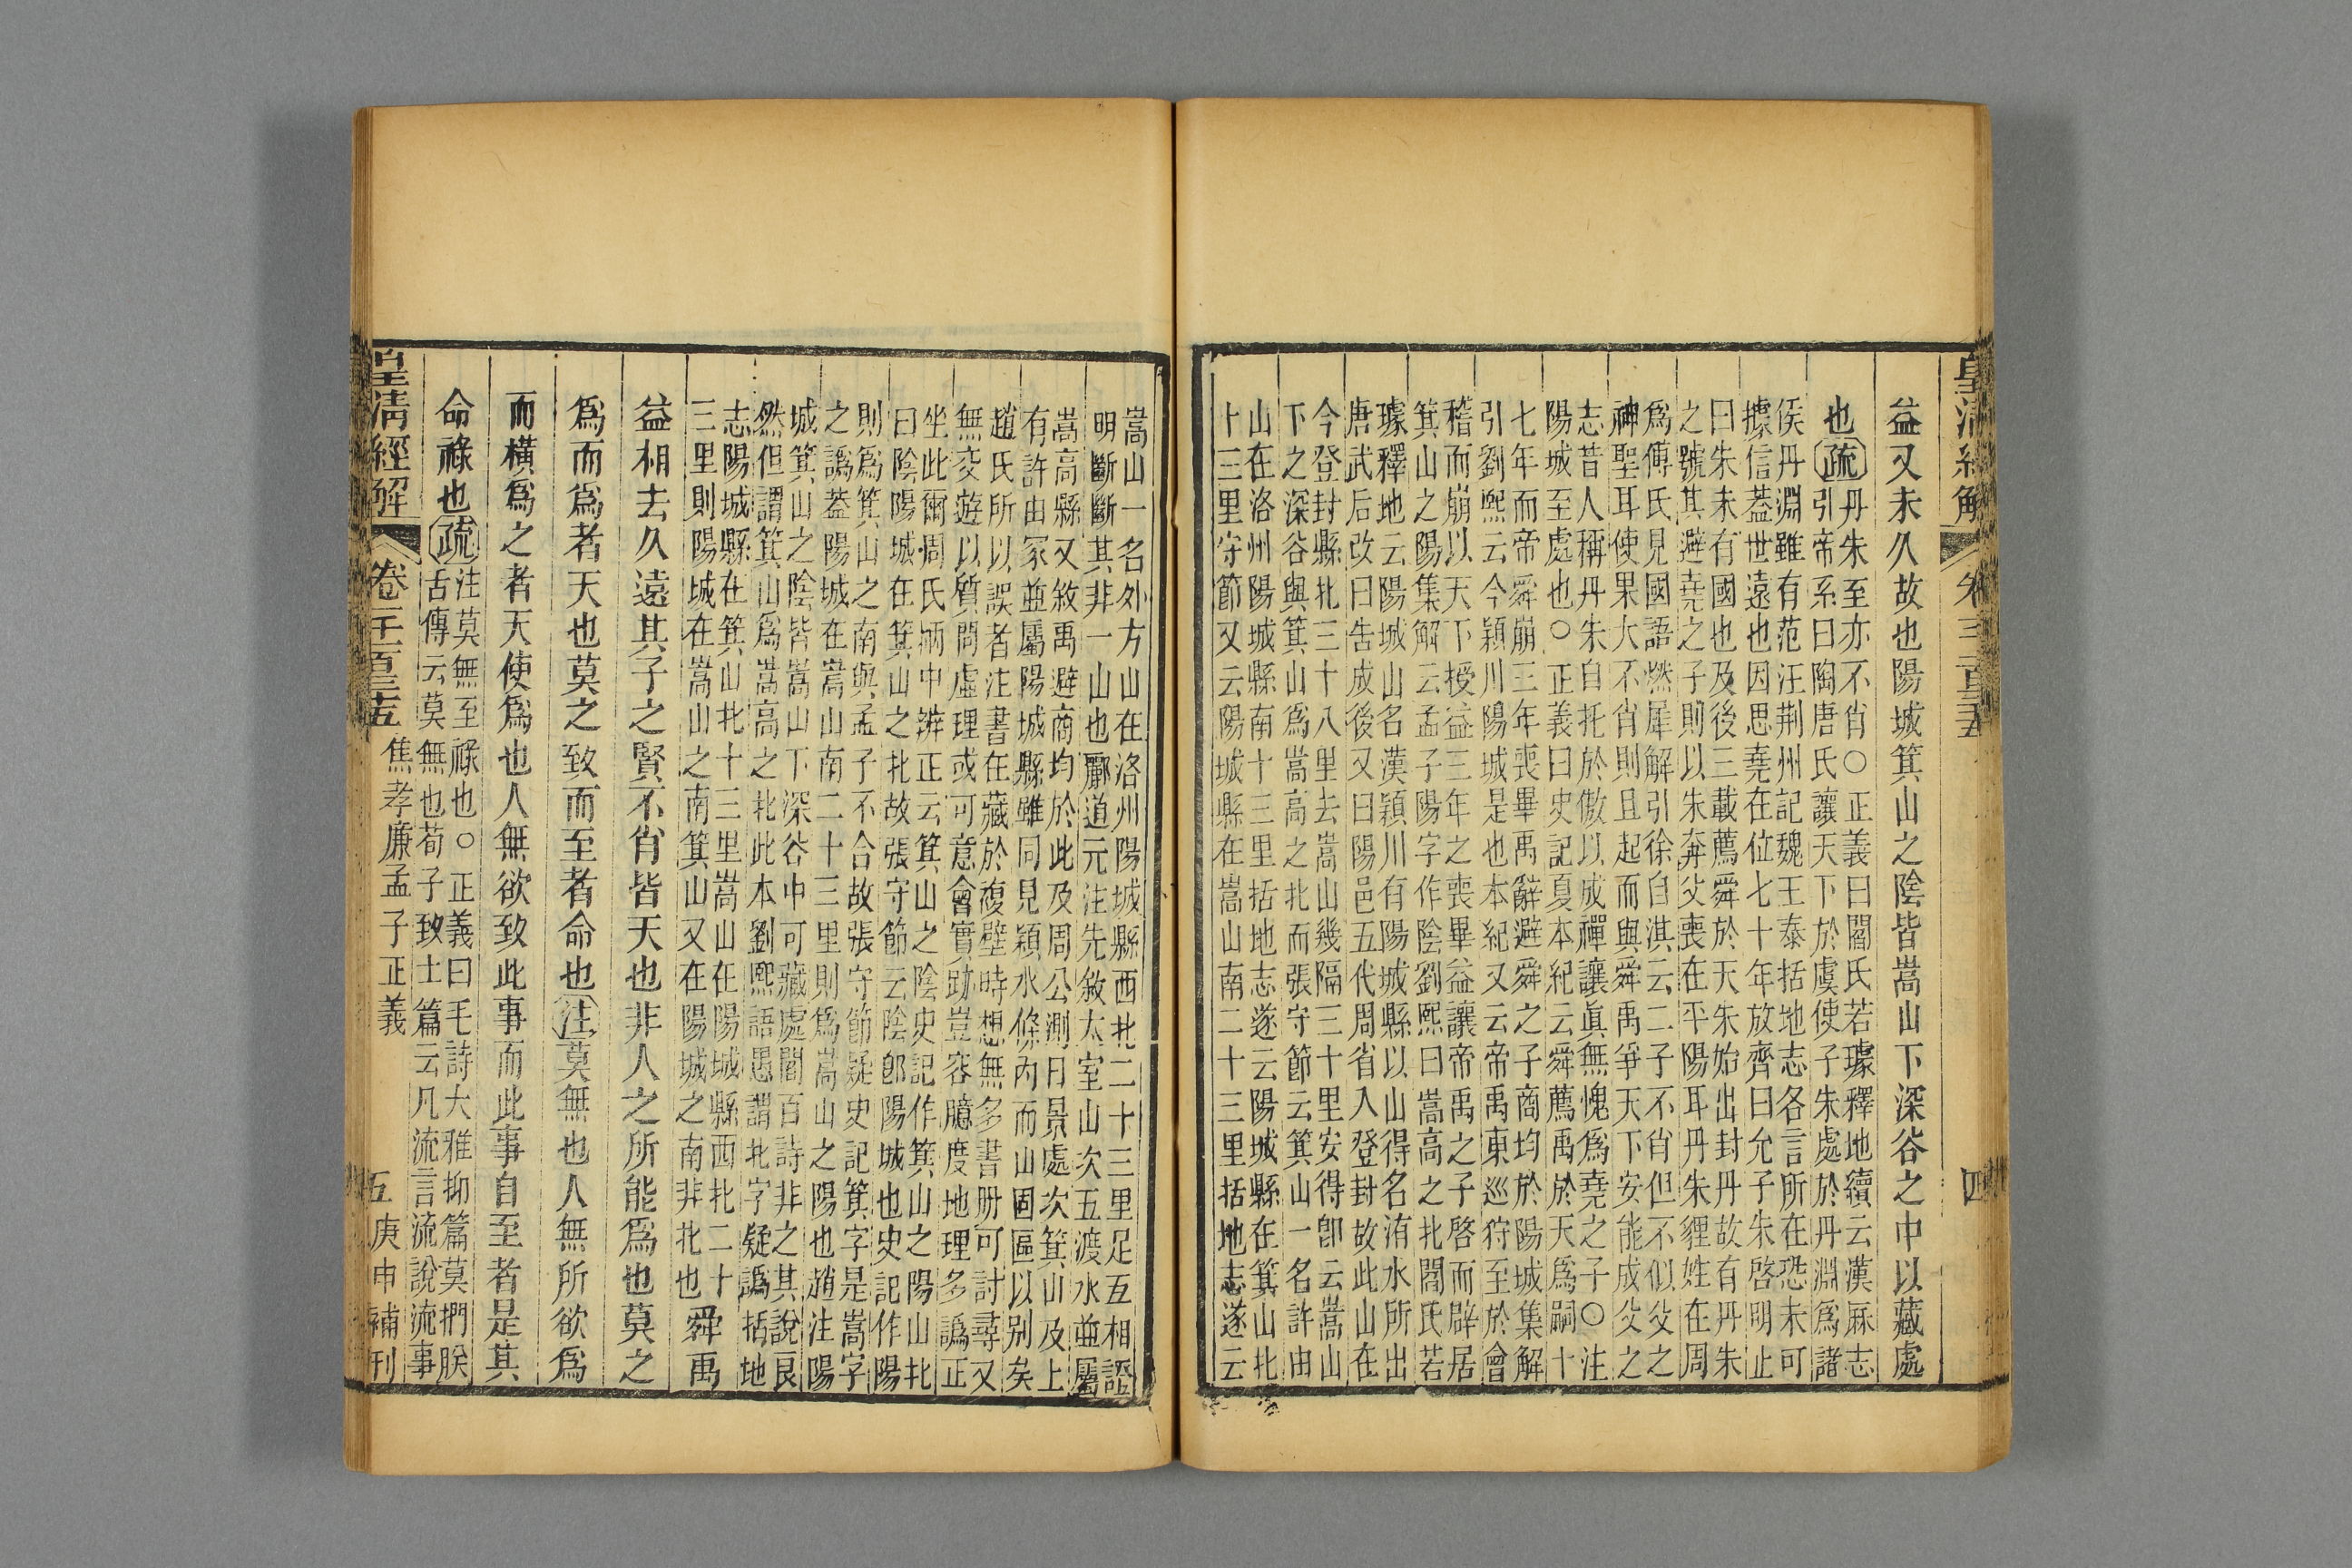 皇清經解 卷一千一百三十五 四
益又未久故也陽城箕山之陰皆嵩山下深谷之中以藏處
也疏
丹朱至亦不肖○正義曰閻氏若璩釋地續云漢厤志
引帝系曰陶唐氏讓天下於虞使子朱處於丹淵爲諸
侯丹淵雖有范汪荆州記魏王泰括地志各言所在恐未可
據信蓋世遠也因思堯在位七十年放齊曰允子朱啓明止
曰朱未有國也及後三載薦舜於天朱始出封丹故有丹朱
之號其避堯之子則以朱奔父喪在平陽耳丹朱貍姓在周
爲傅氏見國語㸐犀解引徐自淇云二子不肖但不似父之
神聖耳使果大不肖則且起而與舜禹爭天下安能成父之
志昔人稱丹朱自托於傲以成禪讓眞無愧爲堯之子○注
陽城至處也○正義曰史記夏本紀云舜薦禹於天爲嗣十
七年而帝舜崩三年喪畢禹辭避舜之子商均於陽城集解
引劉熙云今潁川陽城是也本紀又云帝禹東巡狩至於會
稽而崩以天下授益三年之喪畢益讓帝禹之子啓而辟居
箕山之陽集解云孟子陽字作陰劉熙曰嵩高之北閻氏若
璩釋地云陽城山名漢潁川有陽城縣以山得名洧水所出
唐武后改曰告成後又曰陽邑五代周省入登封故此山在
今登封縣北三十八里去嵩山幾隔三十里安得卽云嵩山
下之深谷與箕山爲嵩高之北而張守節云箕山一名許由
山在洛州陽城縣南十三里括地志遂云陽城縣在箕山北
十三里守節又云陽城縣在嵩山南二十三里括地志遂云
嵩山一名外方山在洛州陽城縣西北二十三里足五相證
明斷斷其非一山也酈道元注先敘太室山次五渡水並屬
嵩高縣又敘禹避商均於此及周公測日景處次箕山及上
有許由冢並屬陽城縣雖同見潁水條內而山固區以别矣
趙氏所以誤者注書在藏於複壁時想無多書册可討尋又
無交遊以質問虛理或可意會實跡豈容臆度地理多譌正
坐此爾周氏柄中辨正云箕山之陰史記作箕山之陽山北
曰陰陽城在箕山之北故張守節云陰卽陽城也史記作陽
則爲箕山之南與孟子不合故張守節疑史記箕字是嵩字
之譌蓋陽城在嵩山南二十三里則爲嵩山之陽也趙注陽
城箕山之陰皆嵩山下深谷中可藏處閻百詩非之其說良
然但謂箕山爲嵩高之北此本劉熙語愚謂北字疑譌括地
志陽城縣在箕山北十三里嵩山在陽城縣西北二十
三里則陽城在嵩山之南箕山又在陽城之南非北也
舜禹
益相去久遠其子之賢不肖皆天也非人之所能爲也莫之
爲而爲者天也莫之致而至者命也注莫無也人無所欲爲
而橫爲之者天使爲也人無欲致此事而此事自至者是其
命祿也疏
注莫無至祿也○正義曰毛詩大雅抑篇莫捫朕
舌傳云莫無也荀子致士篇云凡流言流說流事
皇清經解 卷一千一百三十五 焦孝廉孟子正義 五 庚申補刊